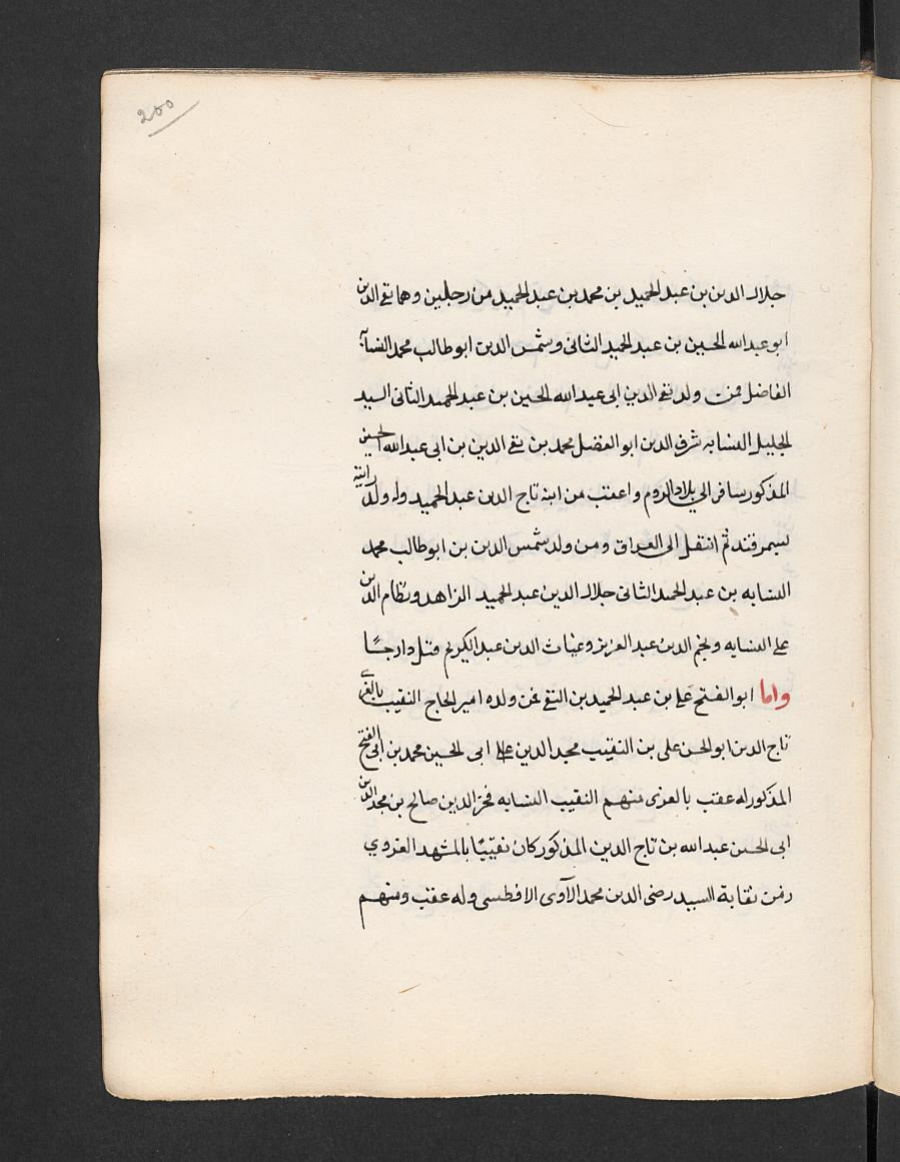 200
جلال الدين بن عبد الحميد بن محمد بن عبد الحميد من رجلين وهما تقى الدين
ابو عبدالله الحسين بن عبد الحميد الثانى وشمس الدين ابو طالب محمد النسابه
الفاضل فمن ولد تقى الدين ابى عبد الله الحسين بن عبد الحميد الثانى السيد
الجليل النسابه شرف الدين ابو الفضل محمد بن تقى الدين بن ابى عبدالله الحسين
المذكور سافر الى بلاد الروم واعقب من ابنه تاج الدين عبد الحميد وله ولد
بسمرقند ثم انتقل الى العراق ومن ولد شمس الدين بن ابو طالب محمد
النسابه بن عبد الحميد الثانى جلال الدين عبد الحميد الزاهد ونظام الدين
على النسابه ونجم الدين عبد العزيز وغياث الدين عبد الكريم قتل دارجًا
واما ابو الفتح على بن عبد الحميد بن التقى فمن ولده امير الحاج النقيب بالغرى
تاج الدين ابو الحسن على بن النقيب مجد الدين ابى الحسين محمد بن ابى الفتح
المذكور له عقب بالغرى منهم النقيب النسابه فخر الدين صالح بن مجد الدين
ابى الحسن عبدالله بن تاج الدين المذكور كان نقيبًا بالمشهد الغروي
زمن نقابة السيد رضى الدين محمد الآوى الافطسى وله عقب ومنهم